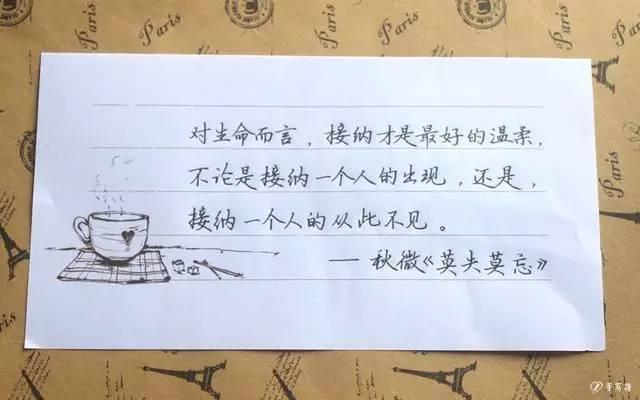 Paris
Paris
Paris
对生命而言，接纳才是最好的温柔，
不论是接纳一个人的出现，还是，
接纳一个人的从此不见。
— 秋微《莫失莫忘》
Paris
Paris
Paris
Paris
手写诗